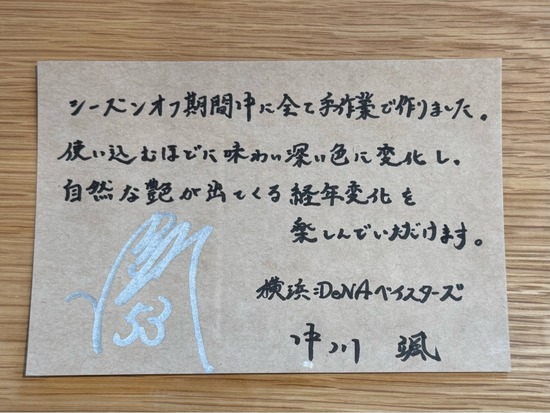 シーズンオフ期間中に全て手作業で作りました。
使い込むほどに味わい深い色に変化し、
自然な艶が出てくる経年変化を
楽しんでいただけます。
横浜DeNAベイスターズ
中川 颯
53